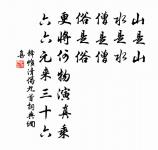 山是山
水是水
僧是僧
俗是俗
更將何物演真乘
六六元來三十六
釋惟清偈九首詞典網